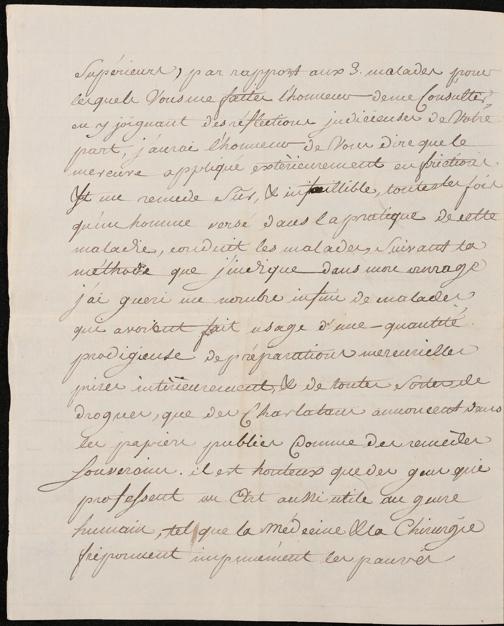 Supérieurs, par rapport aux 3. malades pour
lesquels Vous me faittes l'honneur de me Consulter
en y joignant des réflections judicieuses de Votre
part, j'aurai l'honneur de Vous dire que le
mercure appliqué extèrieurement en friction
Est un remede Sûr, & infaillible, toutes les fois
qu'un homme versé dans la pratique de cette
maladie, conduit les malades, Suivant la
méthode que j'indique dans mon ouvrage
j'ai gueri un nombre infini de malades
qui avoient fait usage d'une quantité
prodigieuse de préparations mercurielles
prises intèrieurement, & de toutes Sortes de
drogues, que des Charlatans annoncent dans
les papiers publics Comme des remèdes
Souverains. il est honteux que des gens qui
professent un Art aussi utile au genre
humain, tel que la Médecine & la Chirurgie
friponnent impunément les pauvres